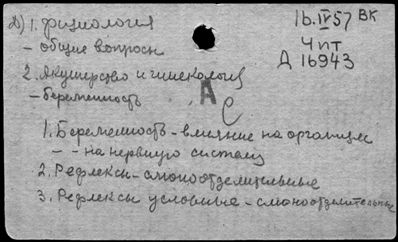 Д) 1. Физиология
16.IV57 ВК
- Общие вопросы
Чит
Д 16943
2. Акушерство и гинекология
- Беременность
А
1. Беременность - влияние на организм
- - на нервную систему
2. Рефлексы - слюноотделительные
3. Рефлексы условные - слюноотделительные